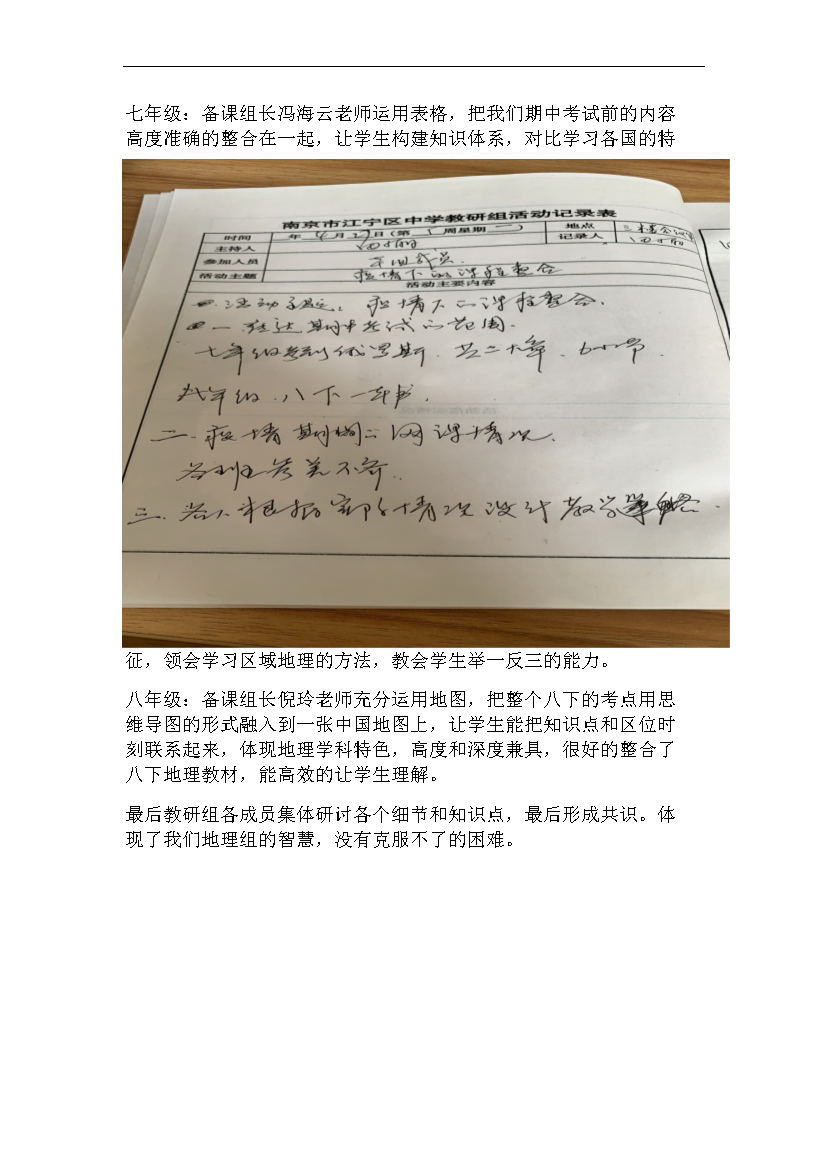 七年级：备课组长冯海云老师运用表格，把我们期中考试前的内容
高度准确的整合在一起，让学生构建知识体系，对比学习各国的特
南京市江宁区中学教研组活动记录表
时间 年 4月27日（第 周星期一） 地点
主持人 记录人
参加人员 全组成员
活动主题 疫情下的课程整合
活动主要内容
活动主题：疫情下的课程整合.
一. 传达期中考试的范围.
七年级考到俄罗斯. 共二大章. 6小节.
八年级. 八下一本书.
二. 疫情期间的网课情况.
各班参差不齐.
三. 各人根据实际情况设计教学
征，领会学习区域地理的方法，教会学生举一反三的能力。
八年级：备课组长倪玲老师充分运用地图，把整个八下的考点用思
维导图的形式融入到一张中国地图上，让学生能把知识点和区位时
刻联系起来，体现地理学科特色，高度和深度兼具，很好的整合了
八下地理教材，能高效的让学生理解。
最后教研组各成员集体研讨各个细节和知识点，最后形成共识。体
现了我们地理组的智慧，没有克服不了的困难。